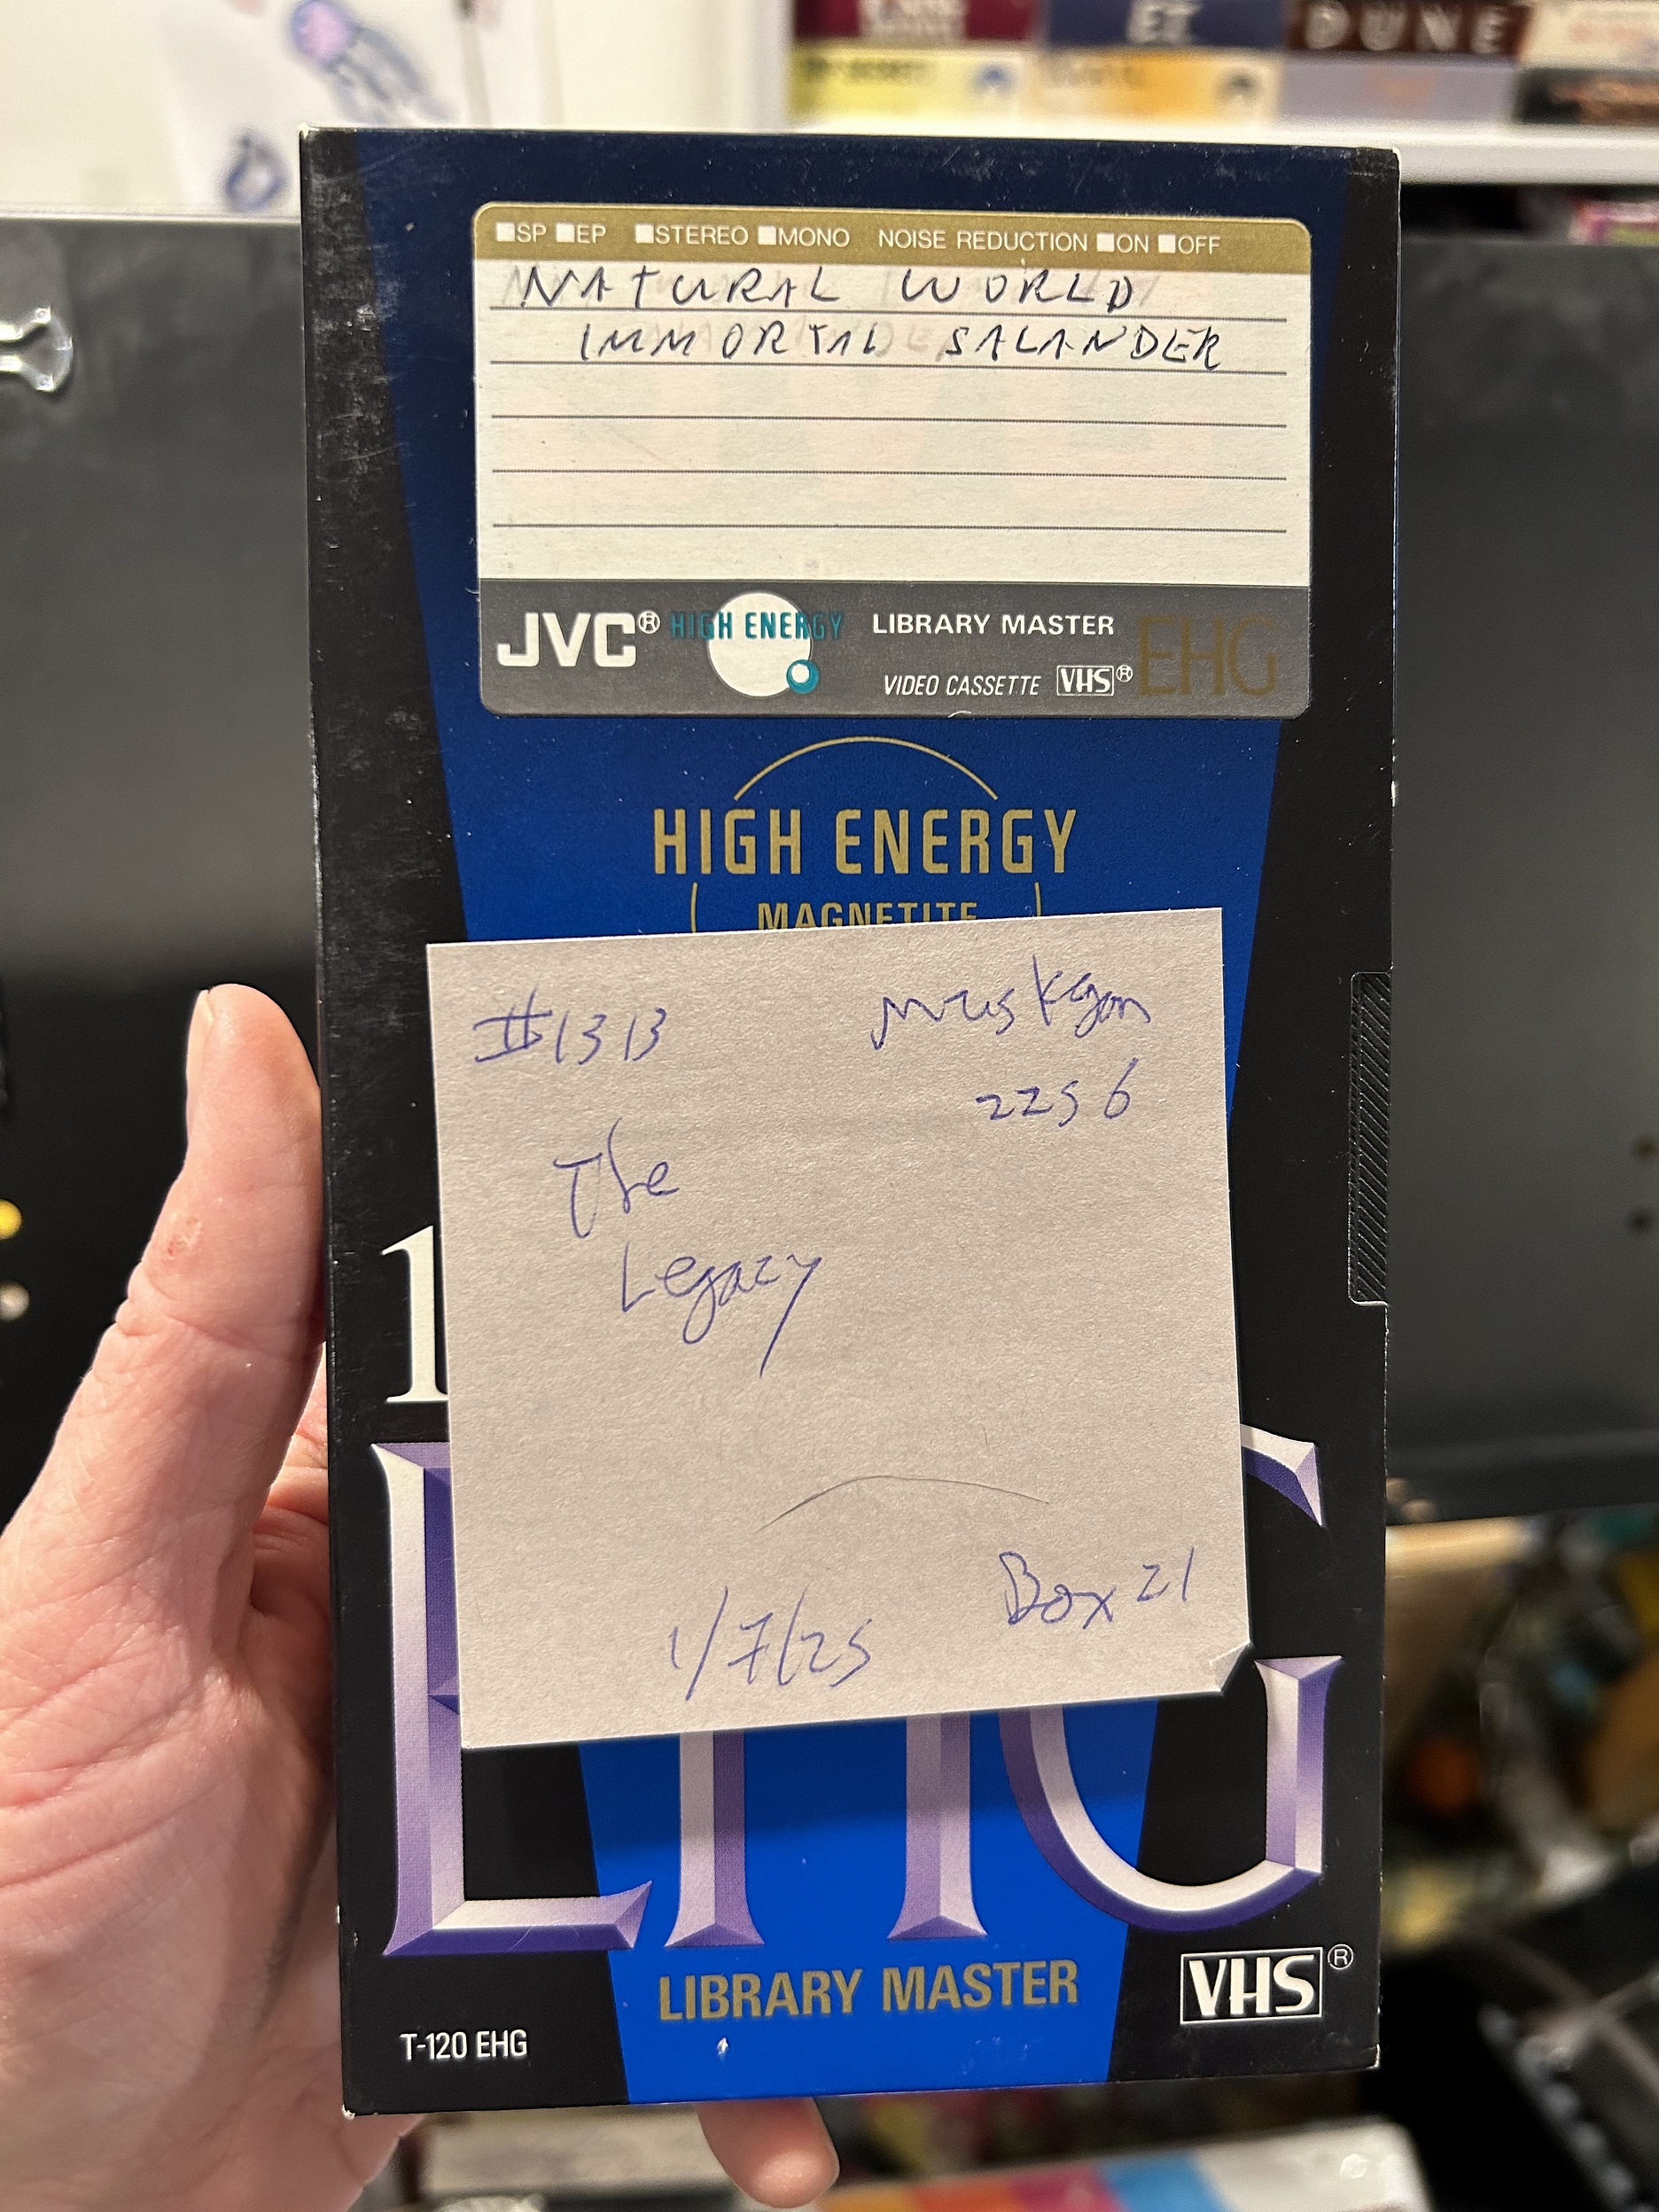 DUNE
SP EP STEREO MONO NOISE REDUCTION ON OFF
NATURAL WORLD
IMMORTAL SALANDER
JVC® HIGH ENERGY LIBRARY MASTER EHG
VIDEO CASSETTE VHS®
HIGH ENERGY
MAGNETITE
#1313 Muskegon
2256
The
Legacy
1
Box 21
1/7/25
EHG
LIBRARY MASTER
VHS®
T-120 EHG